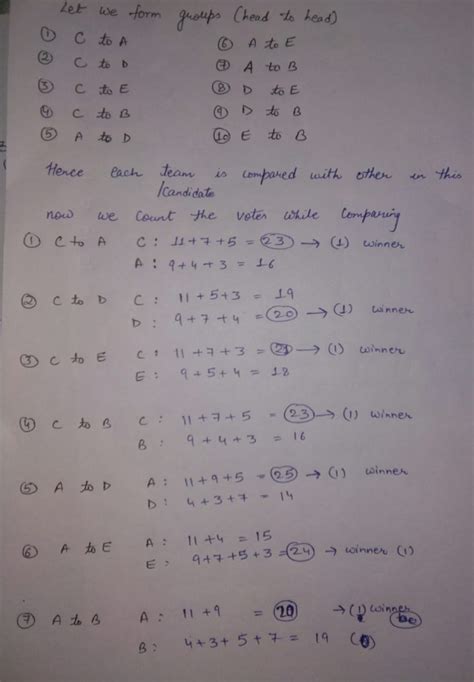 Let we form groups (head to head)
① C to A ⑥ A to E
② C to D ⑦ A to B
③ C to E ⑧ D to E
④ C to B ⑨ D to B
⑤ A to D ⑩ E to B
Hence each team is compared with other in this
/Candidate
now we Count the votes while Comparing
① C to A C: 11+7+5 = 23 → (1) winner
A: 9+4+3 = 16
② C to D C: 11+5+3 = 19
D: 9+7+4 = 20 → (1) winner
③ C to E C: 11+7+3 = 21 → (1) winner
E: 9+5+4 = 18
④ C to B C: 11+7+5 = 23 → (1) winner
B: 9+4+3 = 16
⑤ A to D A: 11+9+5 = 25 → (1) winner
D: 4+3+7 = 14
⑥ A to E A: 11+4 = 15
E: 9+7+5+3 = 24 → winner (1)
⑦ A to B A: 11+9 = 20 → (1) winner
B: 4+3+5+7 = 19